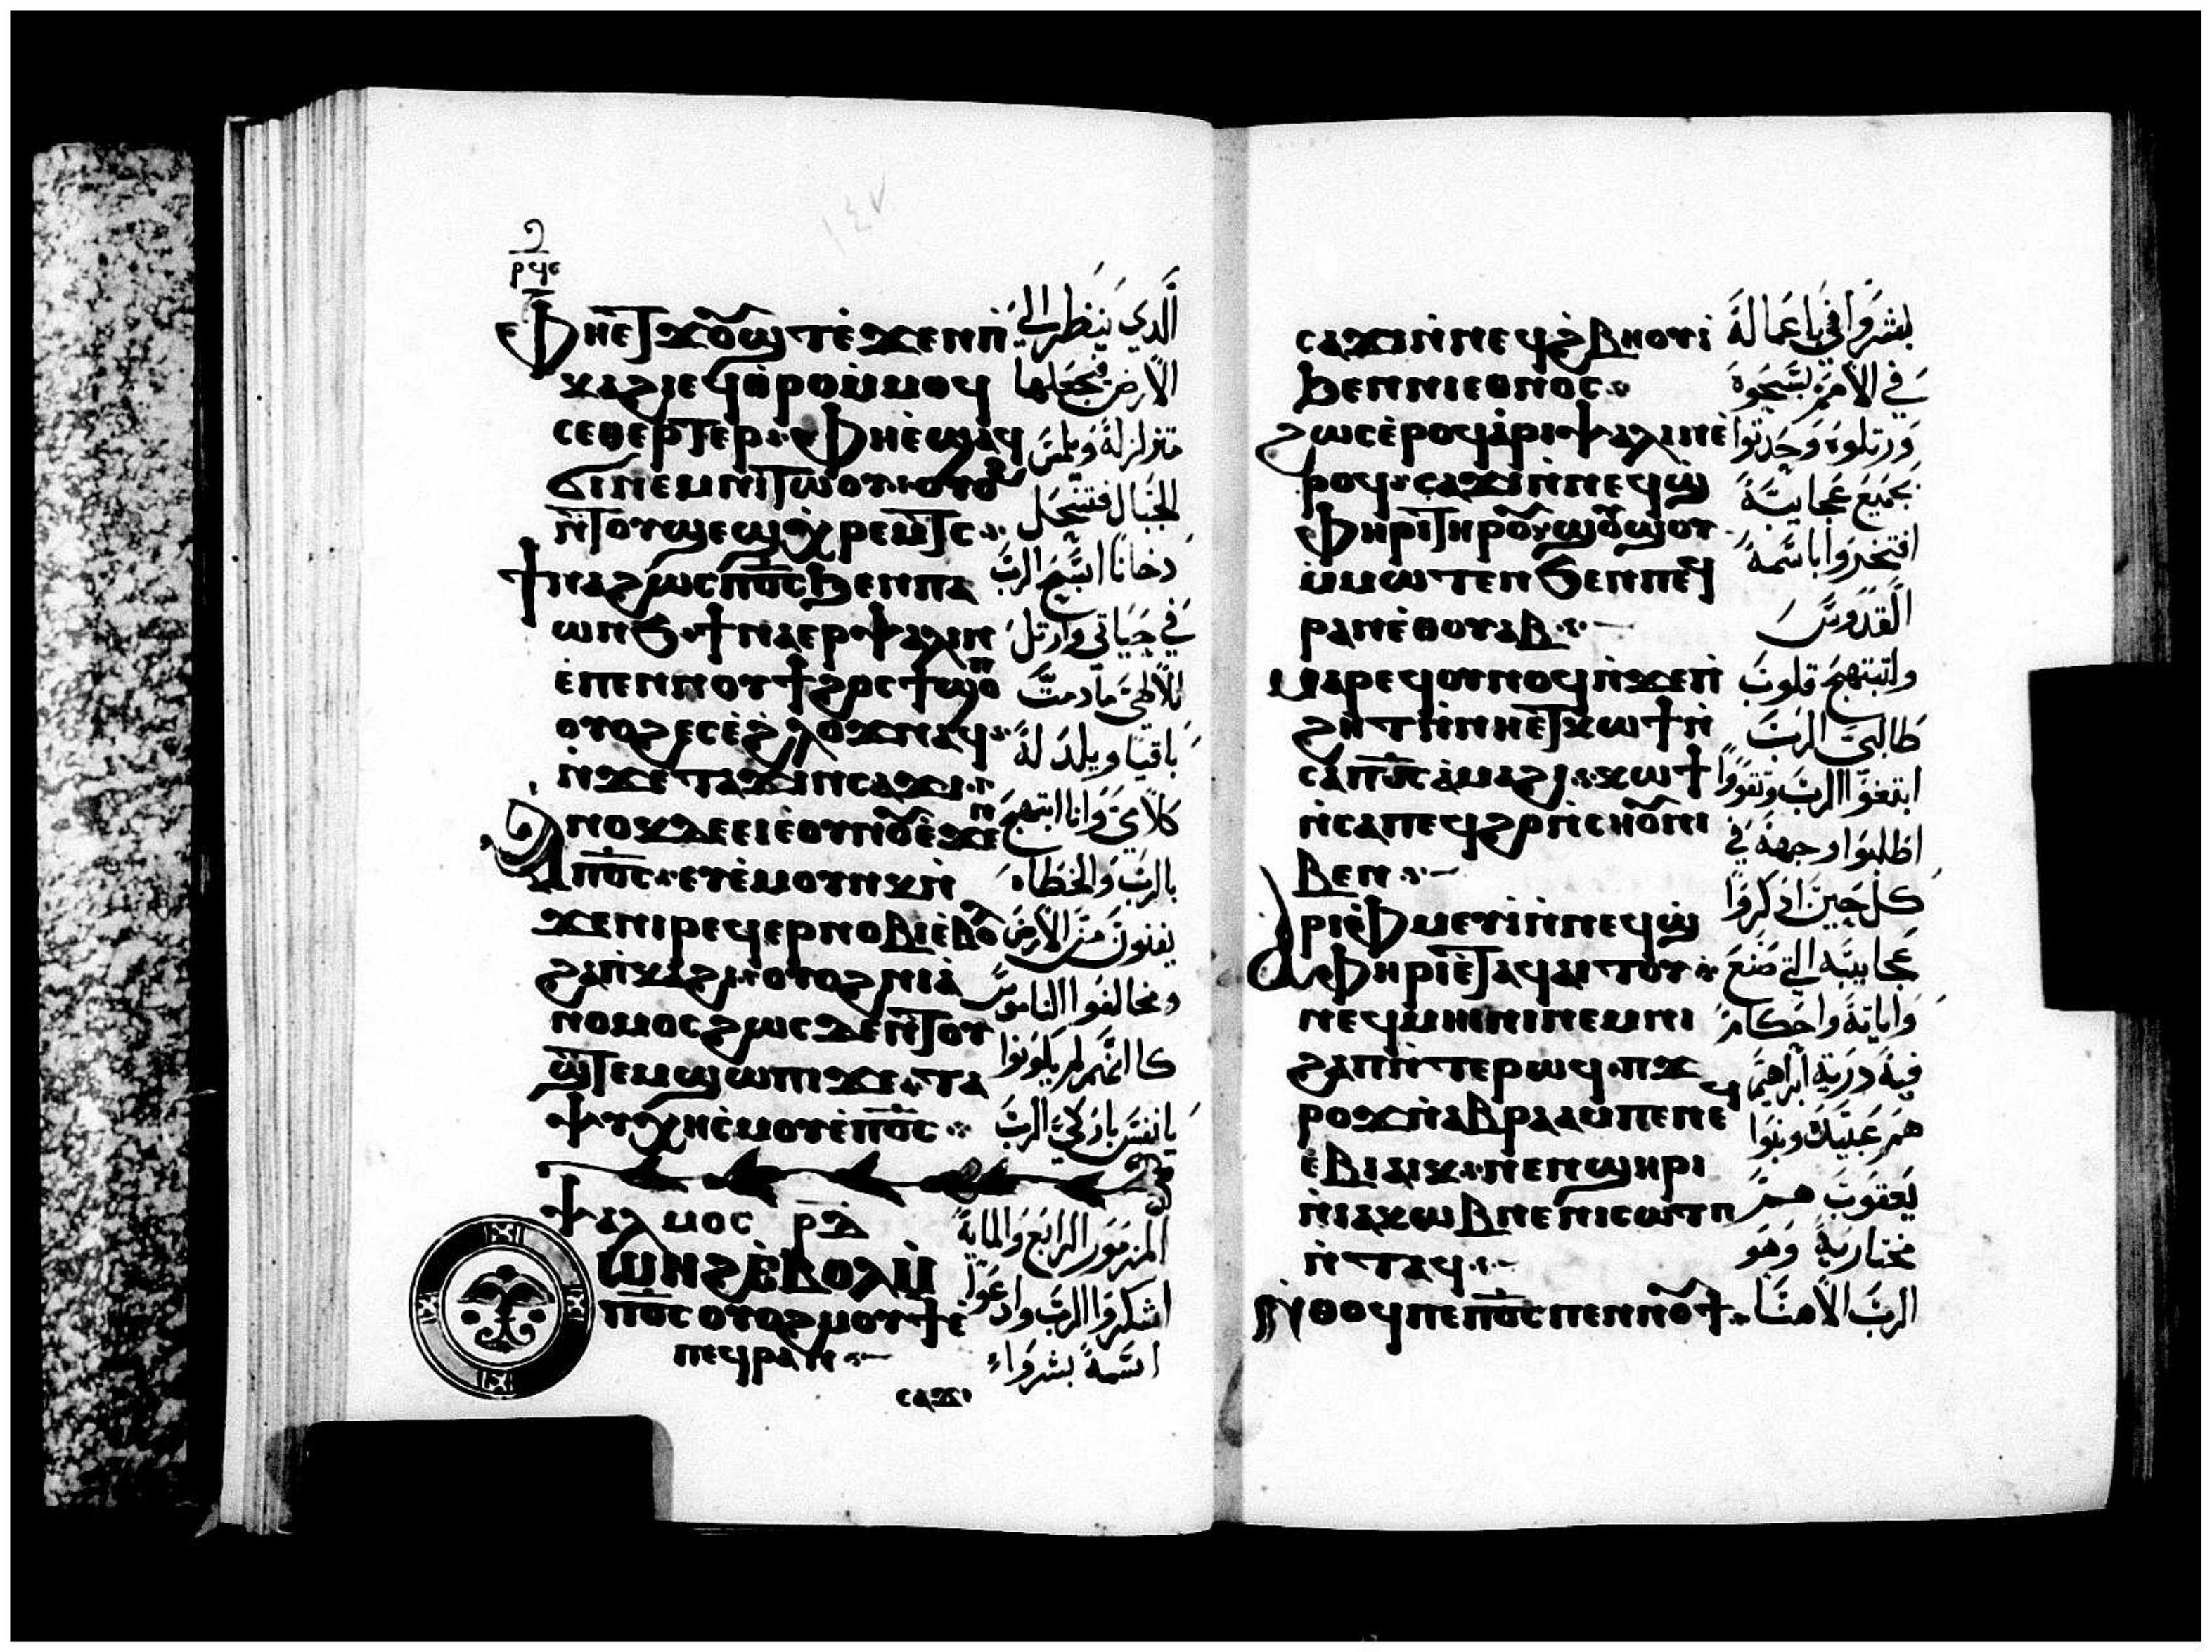 ⲣϥⲋ
١٤٧
ⲫⲏⲉⲧϫⲟⲩϣⲧ ⲉϫⲉⲛ ⲡ̀
ⲕⲁϩⲓ ⲉϥⲑⲣⲟ ⲙ̀ⲙⲟϥ
ⲥⲑⲉⲣⲧⲉⲣ ⲫⲏ ⲉϣⲁϥ
ϭⲓ ⲛⲉⲙ ⲛⲓⲧⲱⲟⲩ ⲟⲩⲟϩ
ⲛ̀ⲧⲟⲩϣⲉϣ ⲭⲣⲉⲙⲧⲥ
ϯⲛⲁϩⲱⲥ ⲡⲟ̅ⲥ̅ ϧⲉⲛ ⲡⲁ
ⲱⲛϧ ϯⲛⲁⲉⲣⲯⲁⲗⲓⲛ
ⲉ̀ⲡⲉⲛⲛⲟⲩϯ ϩⲟⲥ ϯϣⲟⲡ
ⲟⲩⲟϩ ⲉⲥⲉ̀ϩⲗⲟϫ ⲛⲁϥ
ⲛ̀ϫⲉ ⲧⲁϫⲓⲛⲥⲁϫⲓ
ⲁⲛⲟⲕ ⲇⲉ ⲉⲓⲉ̀ⲟⲩⲛⲟϥ ⲉ̀ϫⲉⲛ
ⲡⲟ̅ⲥ̅ ⲉⲩⲉ̀ⲙⲟⲩⲛⲕ ⲛ̀
ϫⲉ ⲛⲓⲣⲉϥⲉⲣⲛⲟⲃⲓ ⲉ̀ⲃⲟⲗ
ϩⲁ ⲡ̀ⲕⲁϩⲓ ⲟⲩⲟϩ ⲛⲓⲁ̀
ⲛⲟⲙⲟⲥ ϩⲱⲥⲇⲉ ⲛ̀ⲧⲟⲩ
ϣⲧⲉⲙϣⲱⲡⲓ ϫⲉ ⲧⲁ
ⲯⲩⲭⲏ ⲥ̀ⲙⲟⲩ ⲉ̀ⲡⲟ̅ⲥ̅
ⲯⲁⲗⲙⲟⲥ ⲣ̅ⲇ̅
ⲟⲩⲱⲛϩ ⲉ̀ⲃⲟⲗ ⲙ̀
ⲡⲟ̅ⲥ̅ ⲟⲩⲟϩ ⲙⲟⲩϯ ⲉ̀
ⲡⲉϥⲣⲁⲛ
ⲥⲁϫⲓ
الَّدي ينظر الي
الارض فيجعلها
متزلزلة ويلمس
الجبال فتتحل
دخانا اسبح الرب
في حياتي وارتل
لالاهي مادمت
باقيا ويلد له
كلامي وانا ابتهج
بالرب والخطاه
يفنون من الارض
ومخالفوا الناموس
كا انهم لم يكونوا
يانفس باركي الرب
المزمور الرابع والمايه
اشكروا الرب وادعوا
اسمه بشروا
ⲥⲁϫⲓ ⲛ̀ⲛⲉϥϩ̀ⲃⲏⲟⲩⲓ̀
ϧⲉⲛ ⲛⲓⲉⲑⲛⲟⲥ
ϩⲱⲥ ⲉ̀ⲣⲟϥ ⲁ̀ⲣⲓⲯⲁⲗⲓⲛ ⲉ̀
ⲣⲟϥ ⲥⲁϫⲓ ⲛ̀ⲛⲉϥϣ̀
ⲫⲏⲣⲓ ⲧⲏⲣⲟⲩ ϣⲟⲩϣⲟⲩ
ⲙ̀ⲙⲱⲧⲉⲛ ϧⲉⲛ ⲡⲉϥ
ⲣⲁⲛ ⲉ̀ⲑⲟⲩⲁⲃ
ⲙⲁⲣⲉϥⲟⲩⲛⲟϥ ⲛ̀ϫⲉ ⲡ̀
ϩⲏⲧ ⲛ̀ⲛⲏⲉⲧⲕⲱϯ ⲛ̀
ⲥⲁ ⲡⲟ̅ⲥ̅ ⲁ̀ⲙⲁϩⲓ ⲕⲱϯ
ⲛ̀ⲥⲁ ⲡⲉϥϩⲟ ⲛ̀ⲥⲏⲟⲩ ⲛⲓ
ⲃⲉⲛ
ⲁⲣⲓⲫ̀ⲙⲉⲩⲓ̀ ⲛ̀ⲛⲉϥϣ̀
ⲫⲏⲣⲓ ⲉ̀ⲧⲁϥⲁⲓⲧⲟⲩ
ⲛⲉϥⲙⲏⲓⲛⲓ ⲛⲉⲙ ⲛⲓ
ϩⲁⲡ ⲛ̀ⲧⲉ ⲣⲱϥ ⲡ̀ϫ
ⲣⲟϫ ⲛ̀ⲁⲃⲣⲁⲁⲙ ⲡⲉ ⲛⲉϥ
ⲉ̀ⲃⲓⲁⲓⲕ ⲛⲉⲛϣⲏⲣⲓ
ⲛ̀ⲓⲁⲕⲱⲃ ⲛⲉ ⲛⲓⲥⲱⲧⲡ
ⲛ̀ⲧⲁϥ
ⲛ̀ⲑⲟϥ ⲡⲉ ⲡⲟ̅ⲥ̅ ⲡⲉⲛⲛⲟⲩϯ
بشروا في باعماله
في الامم سبحوه
ورتلوه وحدثوا
بجميع عجايبه
افتخروا باسمه
القدوس
ولتبتهج قلوب
طالبي الرب
ابتغوا الرب وتقووا
اطلبوا وجهه في
كل حين ادكروا
عجايبه التي صنع
واياته واحكام
فيه درية ابراهيم
هم عبيدك وبنوا
يعقوب هم
مختاريه وهو
الرب الاهنا